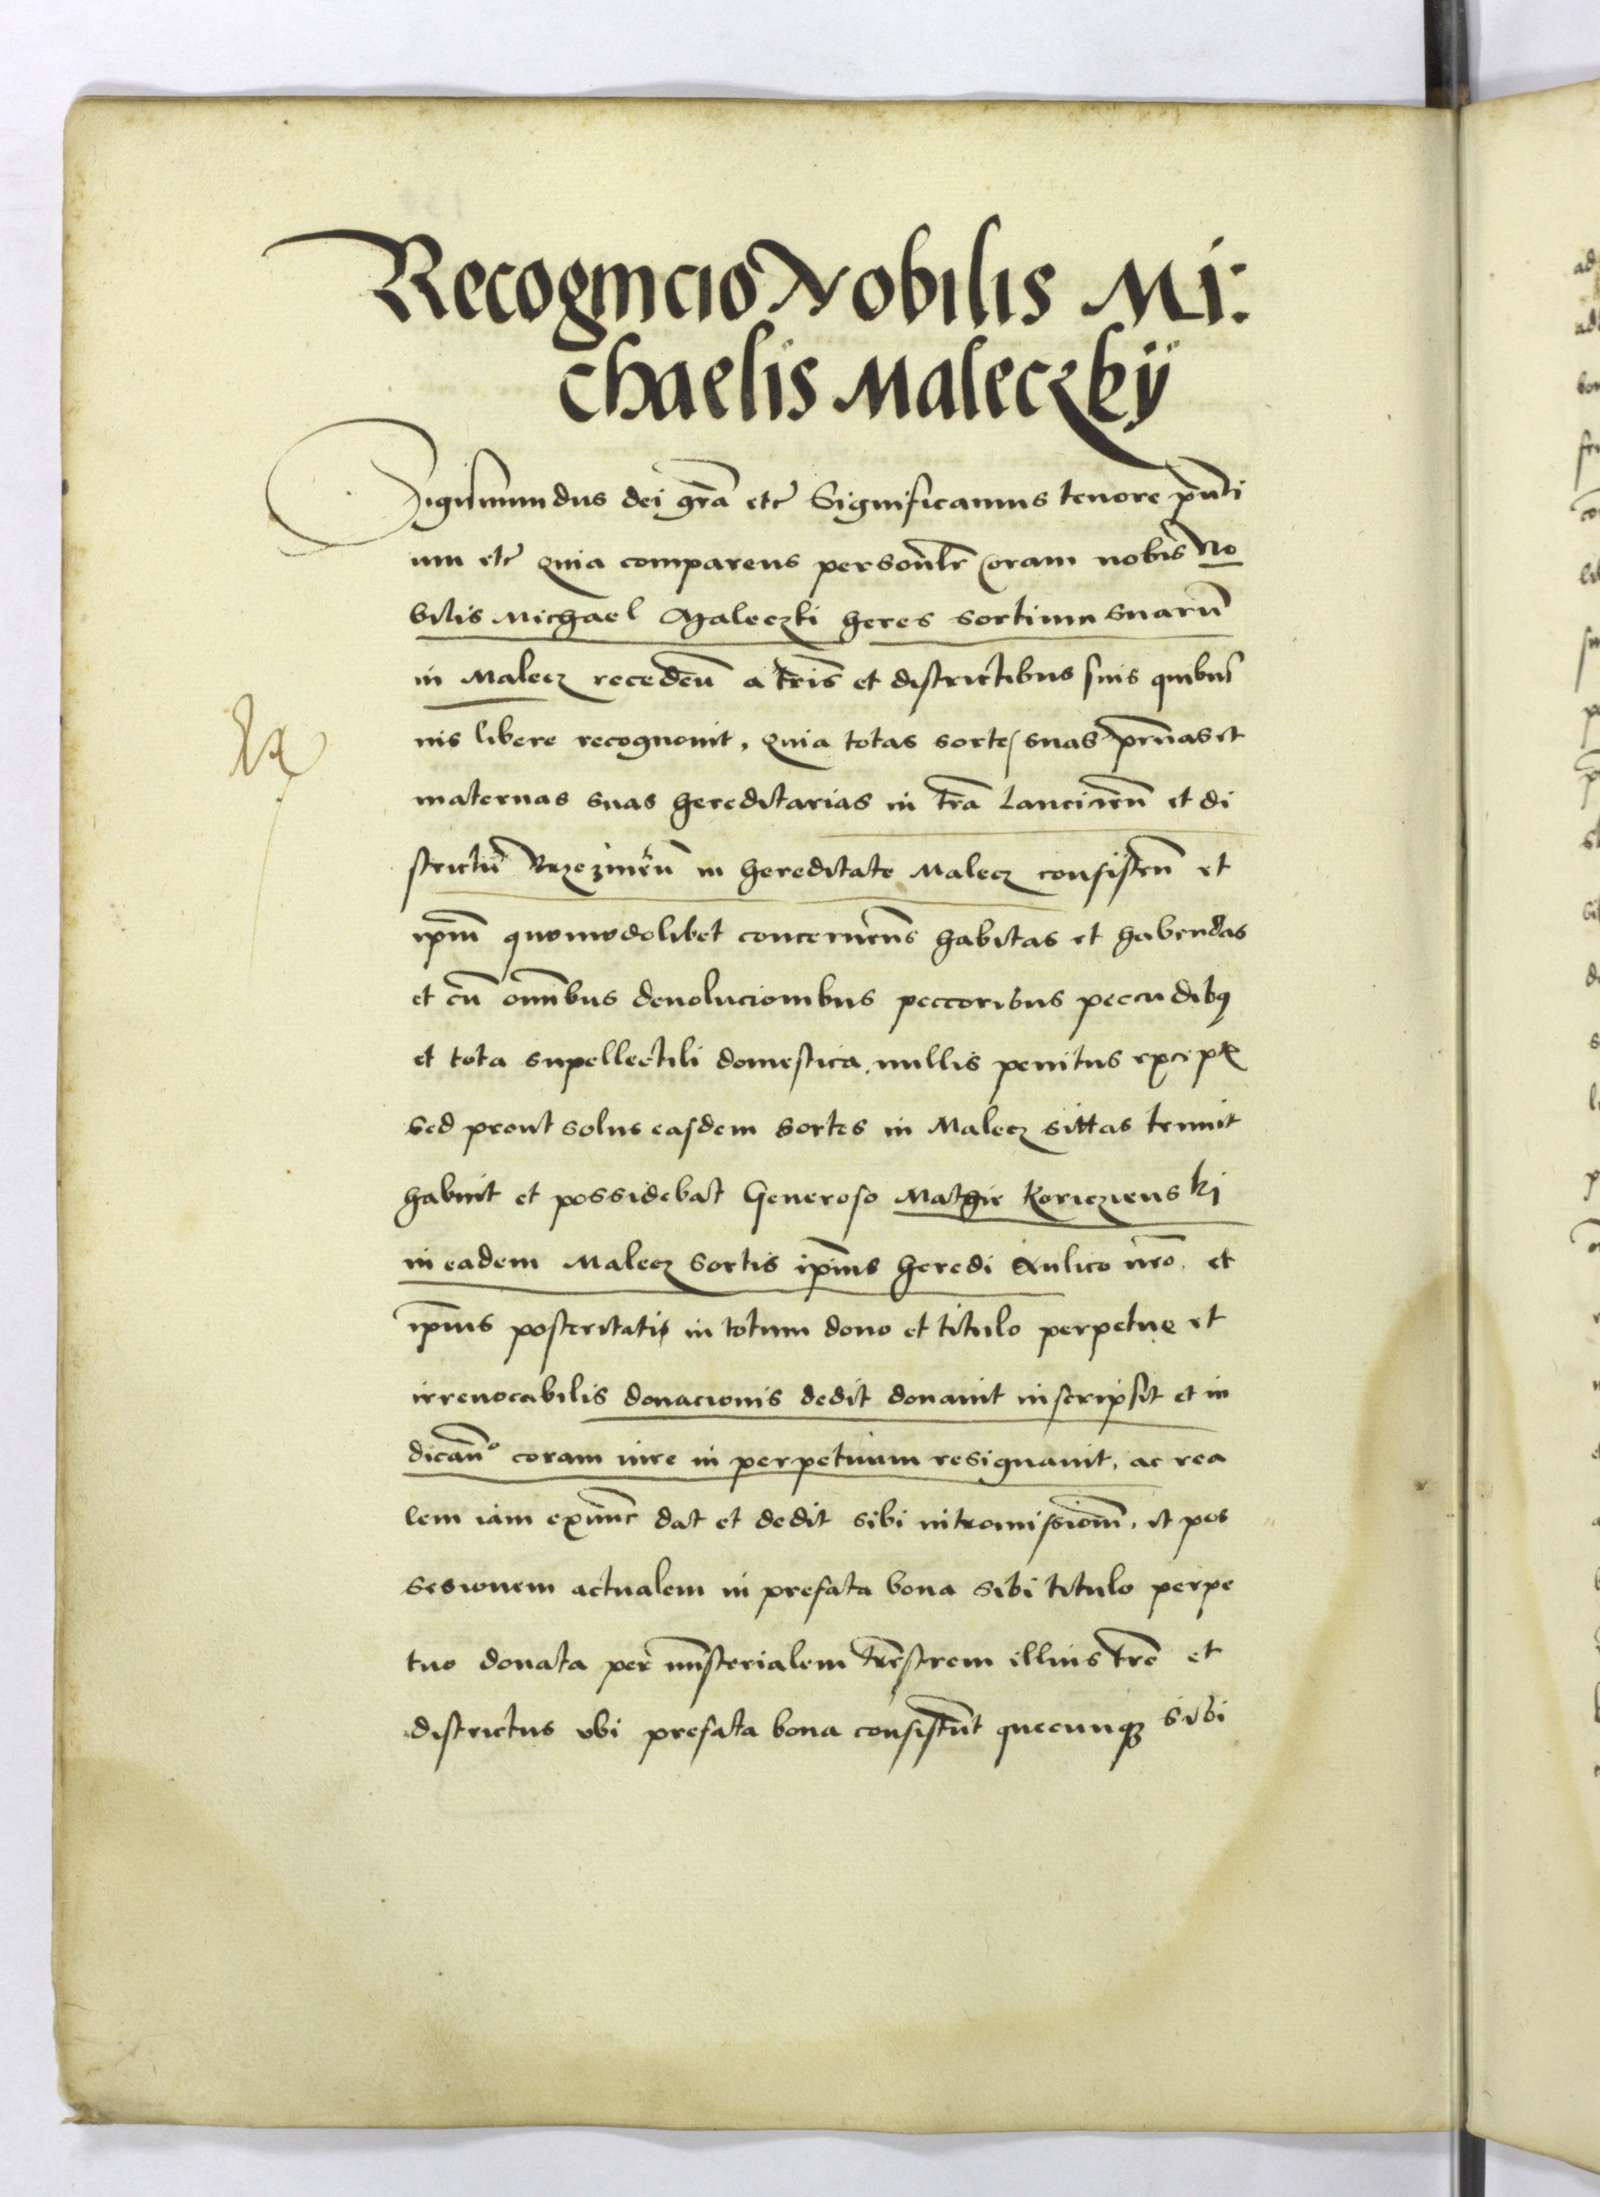 Recognicio Nobilis Mi:
chaelis Maleczkij
Sigismundus dei gra̅ etc̅ Significamus tenore pn̅ti
um etc̅ quia comparens person̅lr̅ coram nobis No
bilis Michael Maleczki heres sortium suaru̅
in Malecz receden̅ a tr̅is et districtibus suis quibus
uis libere recognouit, quia totas sortes suas pr̅nas et
maternas suas hereditarias in tr̅a Lancicien̅ et di
strictu̅ Brzezinen̅ in hereditate Malecz consisten̅ et
ipm̅ quomodolibet concernen̅s habitas et habendas
et cu̅ om̅ibus deuolucionibus peccoribus peccudibq
et tota supellectili domestica, nullis penitus except
sed prout solus easdem sortes in Malecz sittas tenuit
habuit et possidebat Generoso Mathie Koriczienski
in eadem Malecz sortis ipi̅us heredi Aulico nr̅o, et
ipi̅us posteritati in totum dono et titulo perpetue et
irreuocabilis donacionis dedit donauit inscripsit et in
dican̅o coram iure in perpetuum resignauit, ac rea
lem iam exnunc dat et dedit sibi intromissiom̅, et pos
sesionem actualem in prefata bona sibi titulo perpe
tuo donata per mi̅sterialem tr̅estrem illius tr̅e et
districtus vbi prefata bona consistu̅t quecunq3 sibi